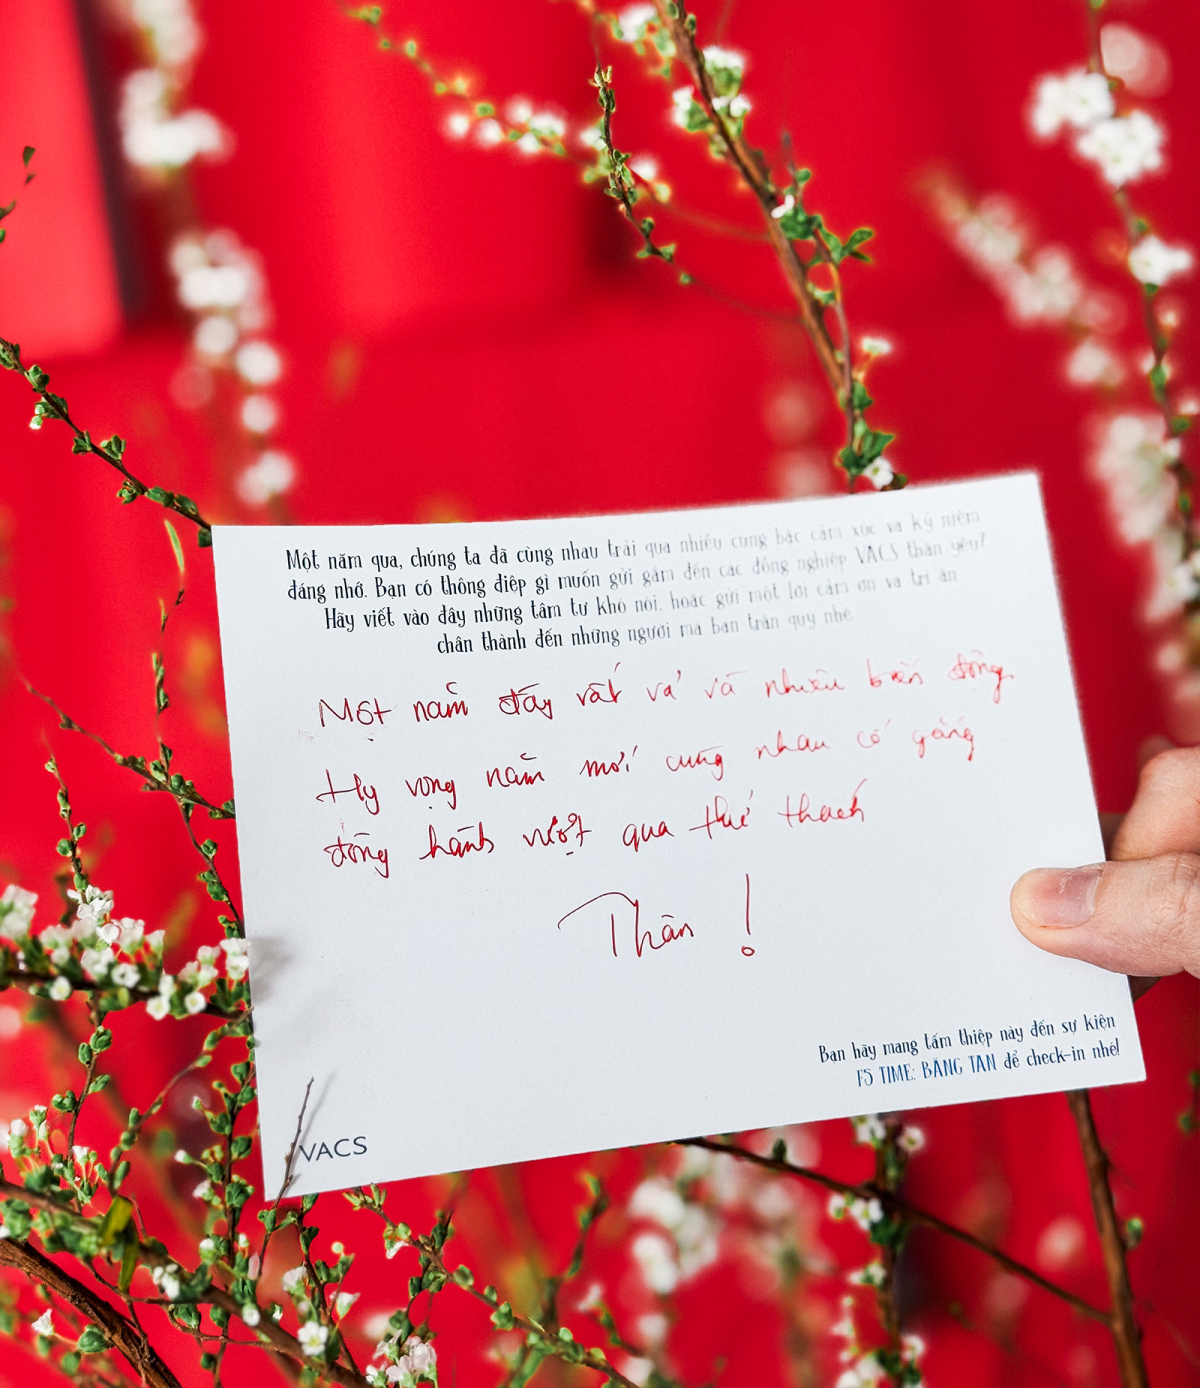 Một năm qua, chúng ta đã cùng nhau trải qua nhiều cung bậc cảm xúc và kỷ niệm
đáng nhớ. Bạn có thông điệp gì muốn gửi gắm đến các đồng nghiệp VACS thân yêu?
Hãy viết vào đây những tâm tư khó nói, hoặc gửi một lời cảm ơn và tri ân
chân thành đến những người mà bạn trân quý nhé.
Một năm đầy vất vả và nhiều biến động.
Hy vọng năm mới cùng nhau cố gắng
đồng hành vượt qua thử thách
Thân!
Bạn hãy mang tấm thiệp này đến sự kiện
F5 TIME: BĂNG TAN để check-in nhé!
VACS